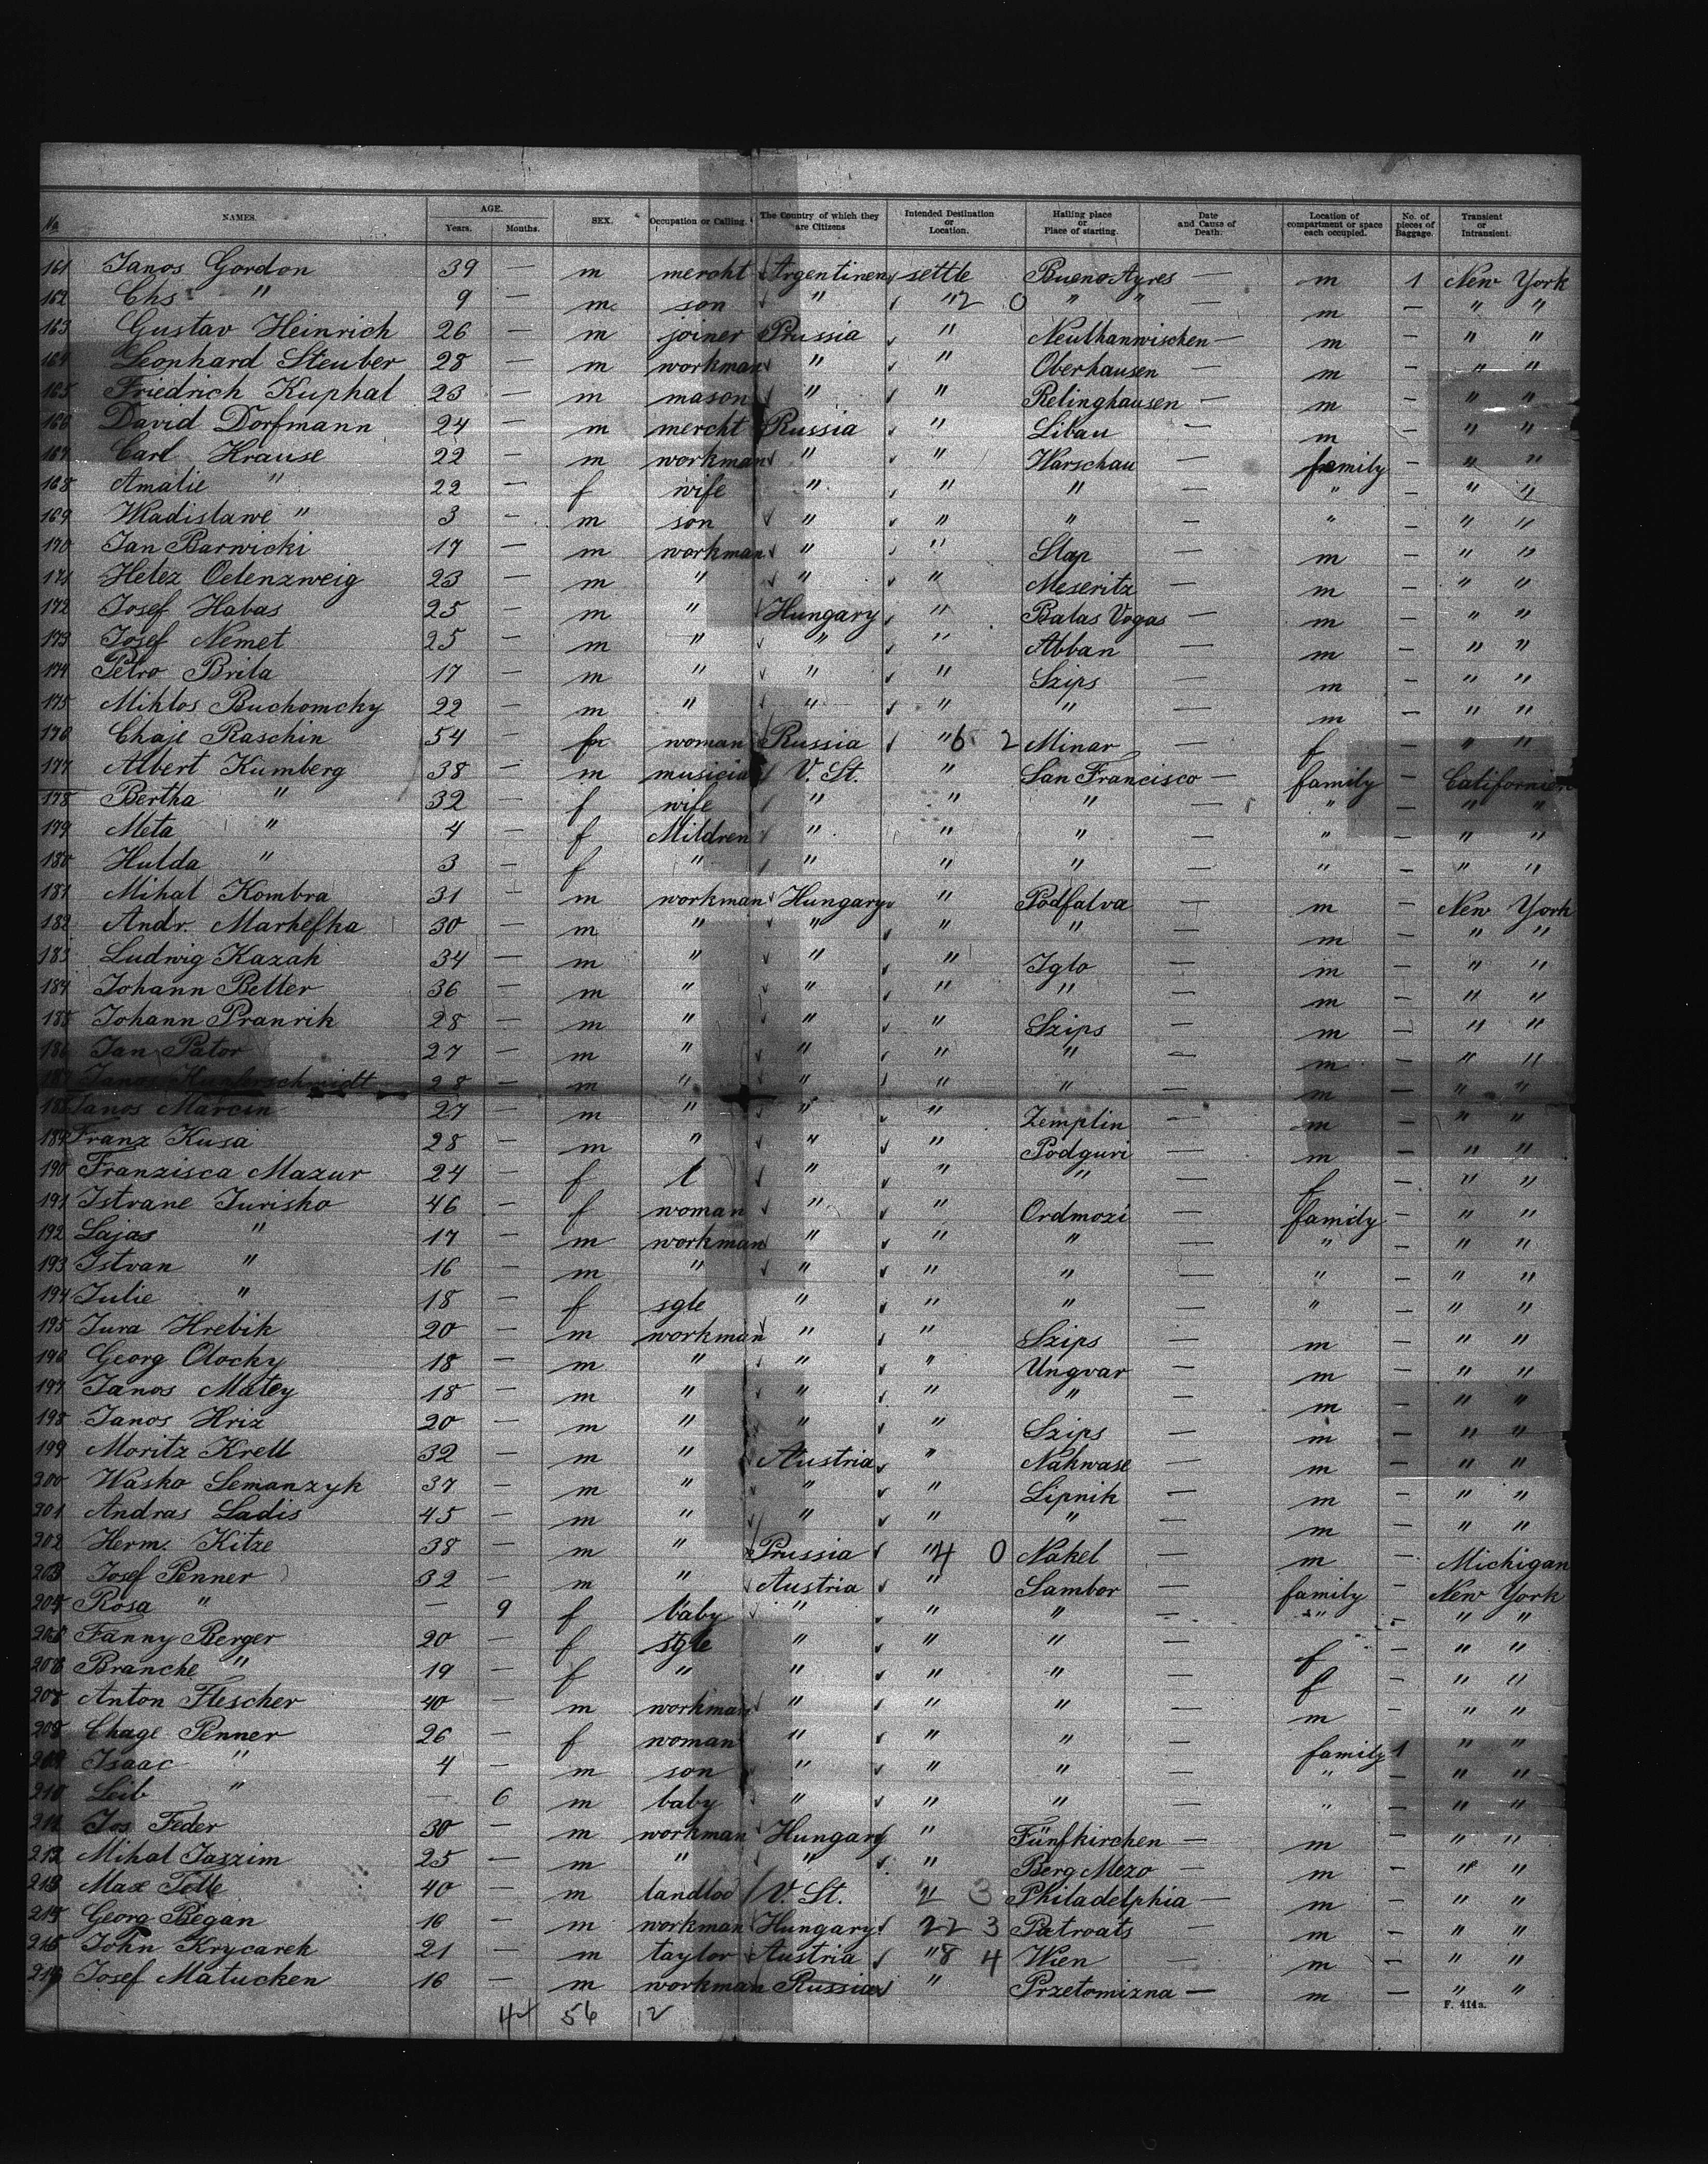 No. NAMES. AGE. Years. Months. SEX. Occupation or Calling. The Country of which they are Citizens Intended Destination or Location. Hailing place or Place of starting. Date and Cause of Death. Location of compartment or space each occupied. No. of pieces of Baggage. Transient or Intransient.
161 Janos Gordon 39 — m mercht Argentinen settle Bueno Ayres — m 1 New York
162 Chs " 9 — m son " " 2 0 " " — m — " "
163 Gustav Heinrich 26 — m joiner Prussia " — m — " "
164 Leonhard Steuber 28 — m workman " " Oberhausen — m — " "
165 Friedrich Kuphal 23 — m mason " " Relinghausen — m — " "
166 David Dorfmann 24 — m mercht Russia " Libau — m — " "
167 Carl Krause 22 — m workman " " Warschau — family — " "
168 Amalie " 22 — f wife " " " — " — " "
169 Wladislawe " 3 — m son " " " — " — " "
170 Jan Barwicki 17 — m workman " " Slap — m — " "
171 Helez Oelenzweig 23 — m " " " Meseritz — m — " "
172 Josef Habas 25 — m " Hungary " Balas Vogas — m — " "
173 Josef Nemet 25 — m " " " Abban — m — " "
174 Petro Brila 17 — m " " " Szips — m — " "
175 Miklos Buchomcky 22 — m " " " " — m — " "
176 Chaje Raschin 54 — f woman Russia " 6 2 Minar — f — " "
177 Albert Kumberg 38 — m musician V. St. " San Francisco — family — Californien
178 Bertha " 32 — f wife " " " — " — " "
179 Meta " 4 — f Mildren " " " — " — " "
180 Hulda " 3 — f " " " " — " — " "
181 Mihal Kombra 31 — m workman Hungary " Podfalva — m — New York
182 Andr. Marhefka 30 — m " " " " — m — " "
183 Ludwig Kazah 34 — m " " " Iglo — m — " "
184 Johann Better 36 — m " " " " — m — " "
185 Johann Pranrik 28 — m " " " Szips — m — " "
186 Jan Pator 27 — m " " " " — m — " "
187 Janos 28 — m " " " " — m — " "
188 Janos Marcin 27 — m " " " Zemplin — m — " "
189 Franz Kusa 28 — m " " " Podguri — m — " "
190 Franzisca Mazur 24 — f " " " — f — " "
191 Istvane Jurisko 46 — f woman " " Ordmozi — family — " "
192 Lajos " 17 — m workman " " " — " — " "
193 Istvan " 16 — m " " " " — " — " "
194 Julie " 18 — f sgle " " " — " — " "
195 Jura Hrebik 20 — m workman " " Szips — m — " "
196 Georg Olocky 18 — m " " " Ungvar — m — " "
197 Janos Matey 18 — m " " " " — m — " "
198 Janos Hriz 20 — m " " " Szips — m — " "
199 Moritz Krell 32 — m " Austria " Nahwase — m — " "
200 Wasko Semanzyk 37 — m " " " Lipnik — m — " "
201 Andras Ladis 45 — m " " " " — m — " "
202 Herm. Kitze 38 — m " Prussia " 4 0 Nakel — m — Michigan
203 Josef Penner 32 — m " Austria " Sambor — family — New York
204 Rosa " — 9 f baby " " " — " — " "
205 Fanny Berger 20 — f sgle " " " — f — " "
206 Branche " 19 — f " " " " — f — " "
207 Anton Flescher 40 — m workman " " " — m — " "
208 Chage Penner 26 — f woman " " " — family 1 " "
209 Isaac " 4 — m son " " " — " — " "
210 Leib " — 6 m baby " " " — " — " "
211 Jos Feder 30 — m workman Hungary " Fünfkirchen — m — " "
212 Mihal Jaszim 25 — m " " " Berg Mezo — m — " "
213 Max Tolle 40 — m landlod V. St. 2 3 Philadelphia — m — " "
214 Georg Began 16 — m workman Hungary 22 3 Patroats — m — " "
215 John Krycarek 21 — m taylor Austria " 8 4 Wien — m — " "
216 Josef Matucken 16 — m workman Russia " Przetomizna — m — " "
44 56 12 F. 414a.